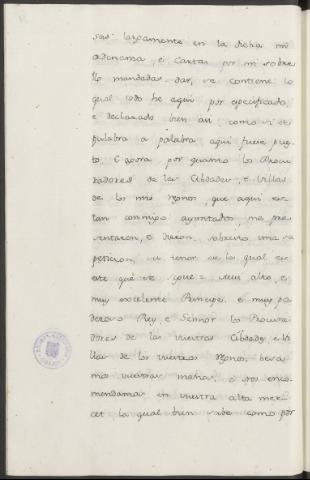 sas largamente en la dicha mi
ordenanza, é Cartas por mi sobre
ello mandadas dar, se contiene lo
qual todo he aqui por especificado,
e declarado bien asi como si de
palabra a palabra aqui fuere pues-
to. E agora por quanto los Procu-
radores de las Cibdades, e Villas
de los mis Reynos, que aqui es-
tan conmigo ayuntados me pre-
sentaron, e dieron, sobre ello una su
peticion, su tenor de la qual es
este que se sigue = Muy alto, e
muy excelente Principe, e muy po-
deroso Rey, e Sennor los Procura-
dores de las vuestras Cibdades, e Vi-
llas de los vuestros Reynos, besa-
mos vuestras manos, e nos enco-
mendamos en vuestra alta mer-
cet la qual bien sabe como por